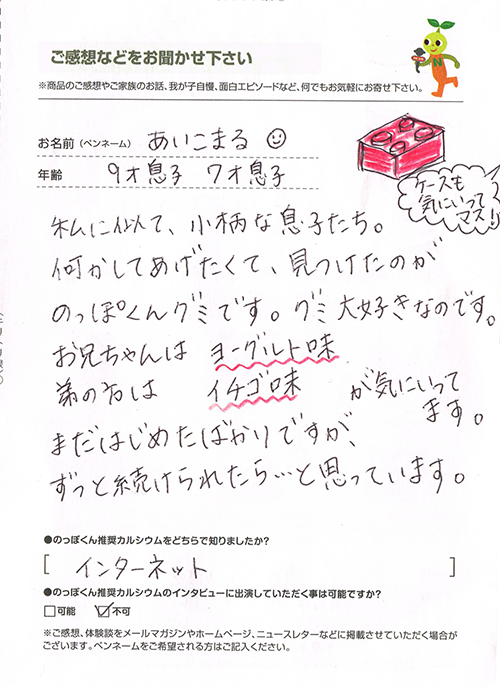 ご感想などをお聞かせ下さい
※商品のご感想やご家族のお話、我が子自慢、面白エピソードなど、何でもお気軽にお寄せ下さい。
お名前（ペンネーム） あいこまる
年齢 9才息子 7才息子
ケースも
気にいって
マス!!
私に似て、小柄な息子たち。
何かしてあげたくて、見つけたのが
のっぽくんグミです。グミ大好きなのです。
お兄ちゃんは ヨーグルト味
弟の方は イチゴ味 が気にいって
ます。
まだはじめたばかりですが、
ずっと続けられたら…と思っています。
●のっぽくん推奨カルシウムをどちらで知りましたか?
[ インターネット ]
●のっぽくん推奨カルシウムのインタビューに出演していただく事は可能ですか?
□可能 ☑不可
※ご感想、体験談をメールマガジンやホームページ、ニュースレターなどに掲載させていただく場合が
ございます。ペンネームをご希望される方はご記入ください。
N